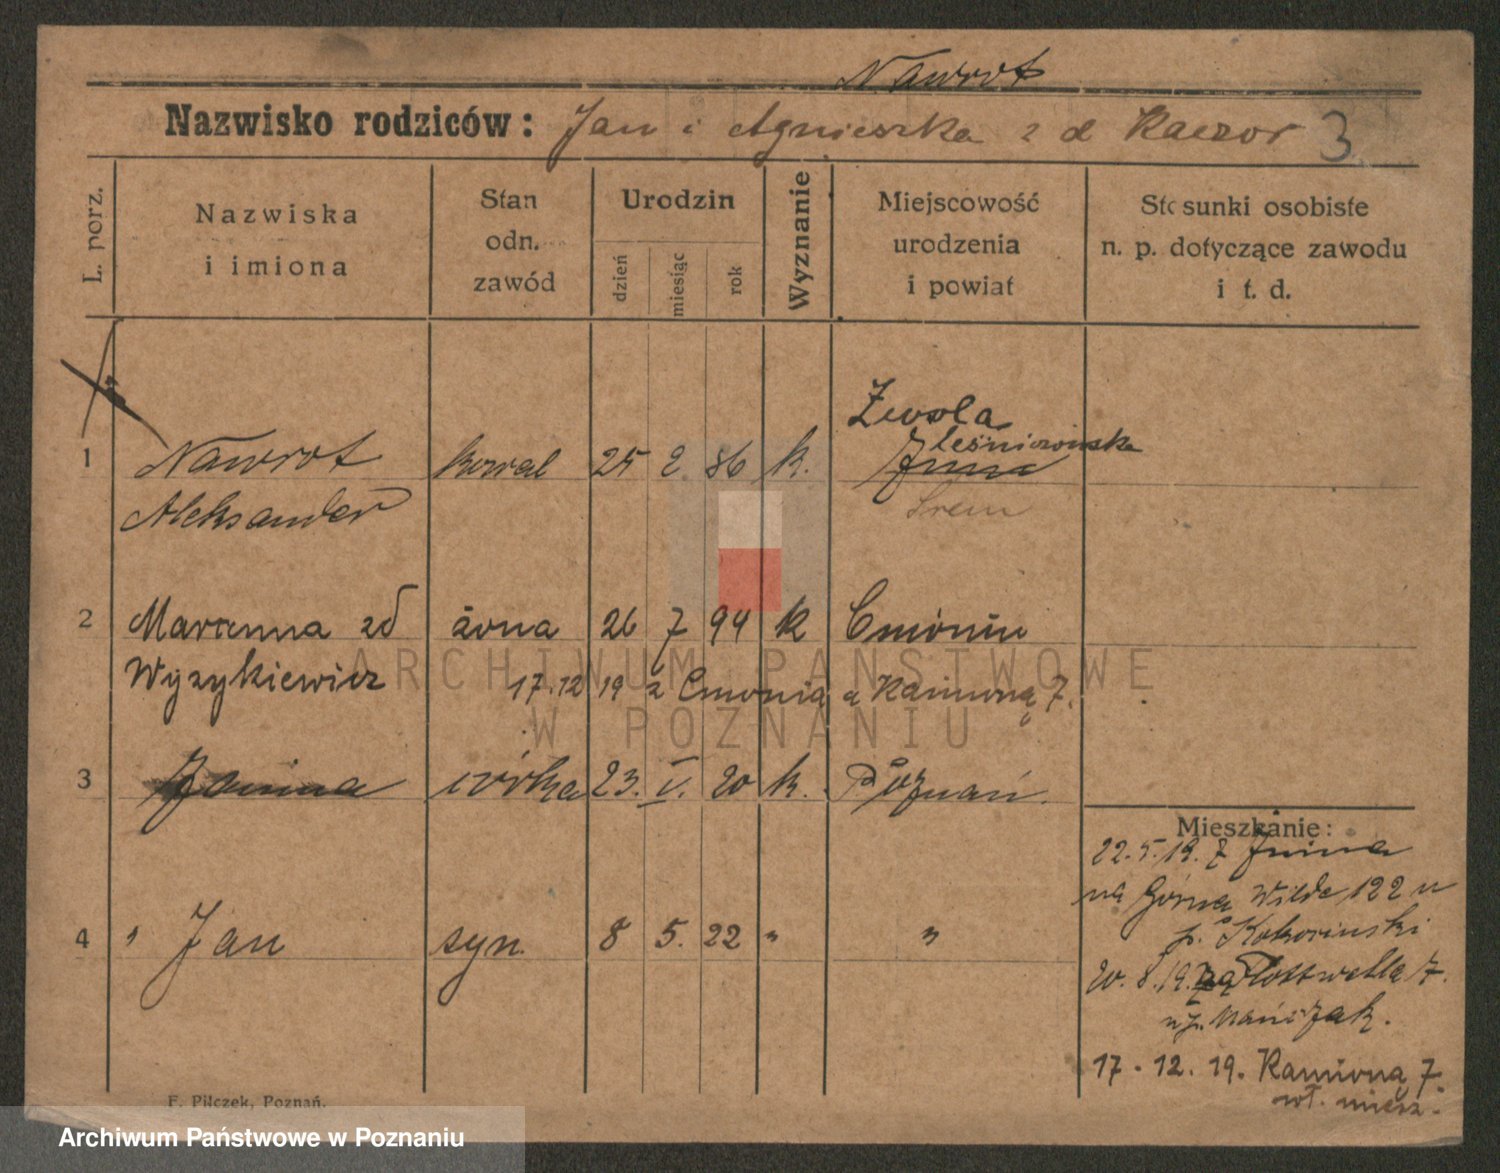 Nawrot
Nazwisko rodziców: Jan i Agnieszka z d Kaczor 3
L. porz.
Nazwiska i imiona
Stan odn. zawód
Urodzin
dzień
miesiąc
rok
Wyznanie
Miejscowość urodzenia i powiat
Stosunki osobiste n. p. dotyczące zawodu i t. d.
1 Nawrot kowal 25 2. 86 k.
Aleksander
Śrem
2 Marianna zd żona 26 7 94 k Cmoniu
Wyzykiewicz 17.12 19 z Cmonią a Kamioną 7.
3 Janina córka 23. V. 20 k. Poznań.
4 " Jan syn. 8 5. 22 " "
Mieszkanie:
22.5.19. z
na Górna Wilde 122 u
p. Kokorinski
20.8.19. 7.
17-12.19. Kamioną 7.
wł. miesz.
F. Pilczek, Poznań.
ARCHIWUM PAŃSTWOWE
W POZNANIU
Archiwum Państwowe w Poznaniu